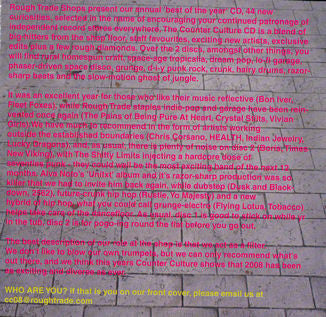 Rough Trade Shops present our annual 'best of the year' CD, 44 new
curiosities, selected in the name of encouraging your continued patronage of
independent record stores everywhere. The Counter Culture CD is a blend of
big-hitters from the shop floor, staff favourites, exciting new artists, exclusive
edits plus a few rough diamonds. Over the 2 discs, amongst other things, you
will find rural homespun craft, space-age tropicalia, dream pop, lo-fi garage,
phaser-driven space disco, grunge, d-i-y punk rock, crunk, hairy drums, razor-
sharp beats and the slow-motion ghost of jungle.
It was an excellent year for those who like their music reflective (Bon Iver,
Fleet Foxes), while Rough Trade staples indie-pop and garage have been rein-
vented once again (The Pains of Being Pure At Heart, Crystal Stilts, Vivian
Girls). We have much to recommend in the form of artists working
outside the established boundaries (Chris Corsano, HEALTH, Indian Jewelry,
Lucky Dragons), and, as usual, there is plenty of noise on disc 2 (Boris, Times
New Viking), with The Shitty Limits injecting a hardcore dose of
they could well be the most exciting band of the next 12
months. Alva Noto's 'Unitxt' album and it's razor-sharp production was so
killer that we had to invite him back again, while dubstep (Dusk and Black-
down, 2562), future-crunk hip hop (Rustie, Yo Majesty) and a new
hybrid of hip hop what you could call grunge-electro (Flying Lotus, Tobacco)
helps take care of the dancefloor. As usual, disc 1 is good to stick on while yr
in the tub, disc 2 for pogo-ing round the flat before you go out.
The best description of our role at the shop is that we act as a filter.
We don't like to blow our own trumpets, but we can only recommend what's
out there, and we think this years Counter Culture shows that 2008 has been
as exciting and diverse as ever.
WHO ARE YOU? If that is you on our front cover, please email us at
cc08@roughtrade.com